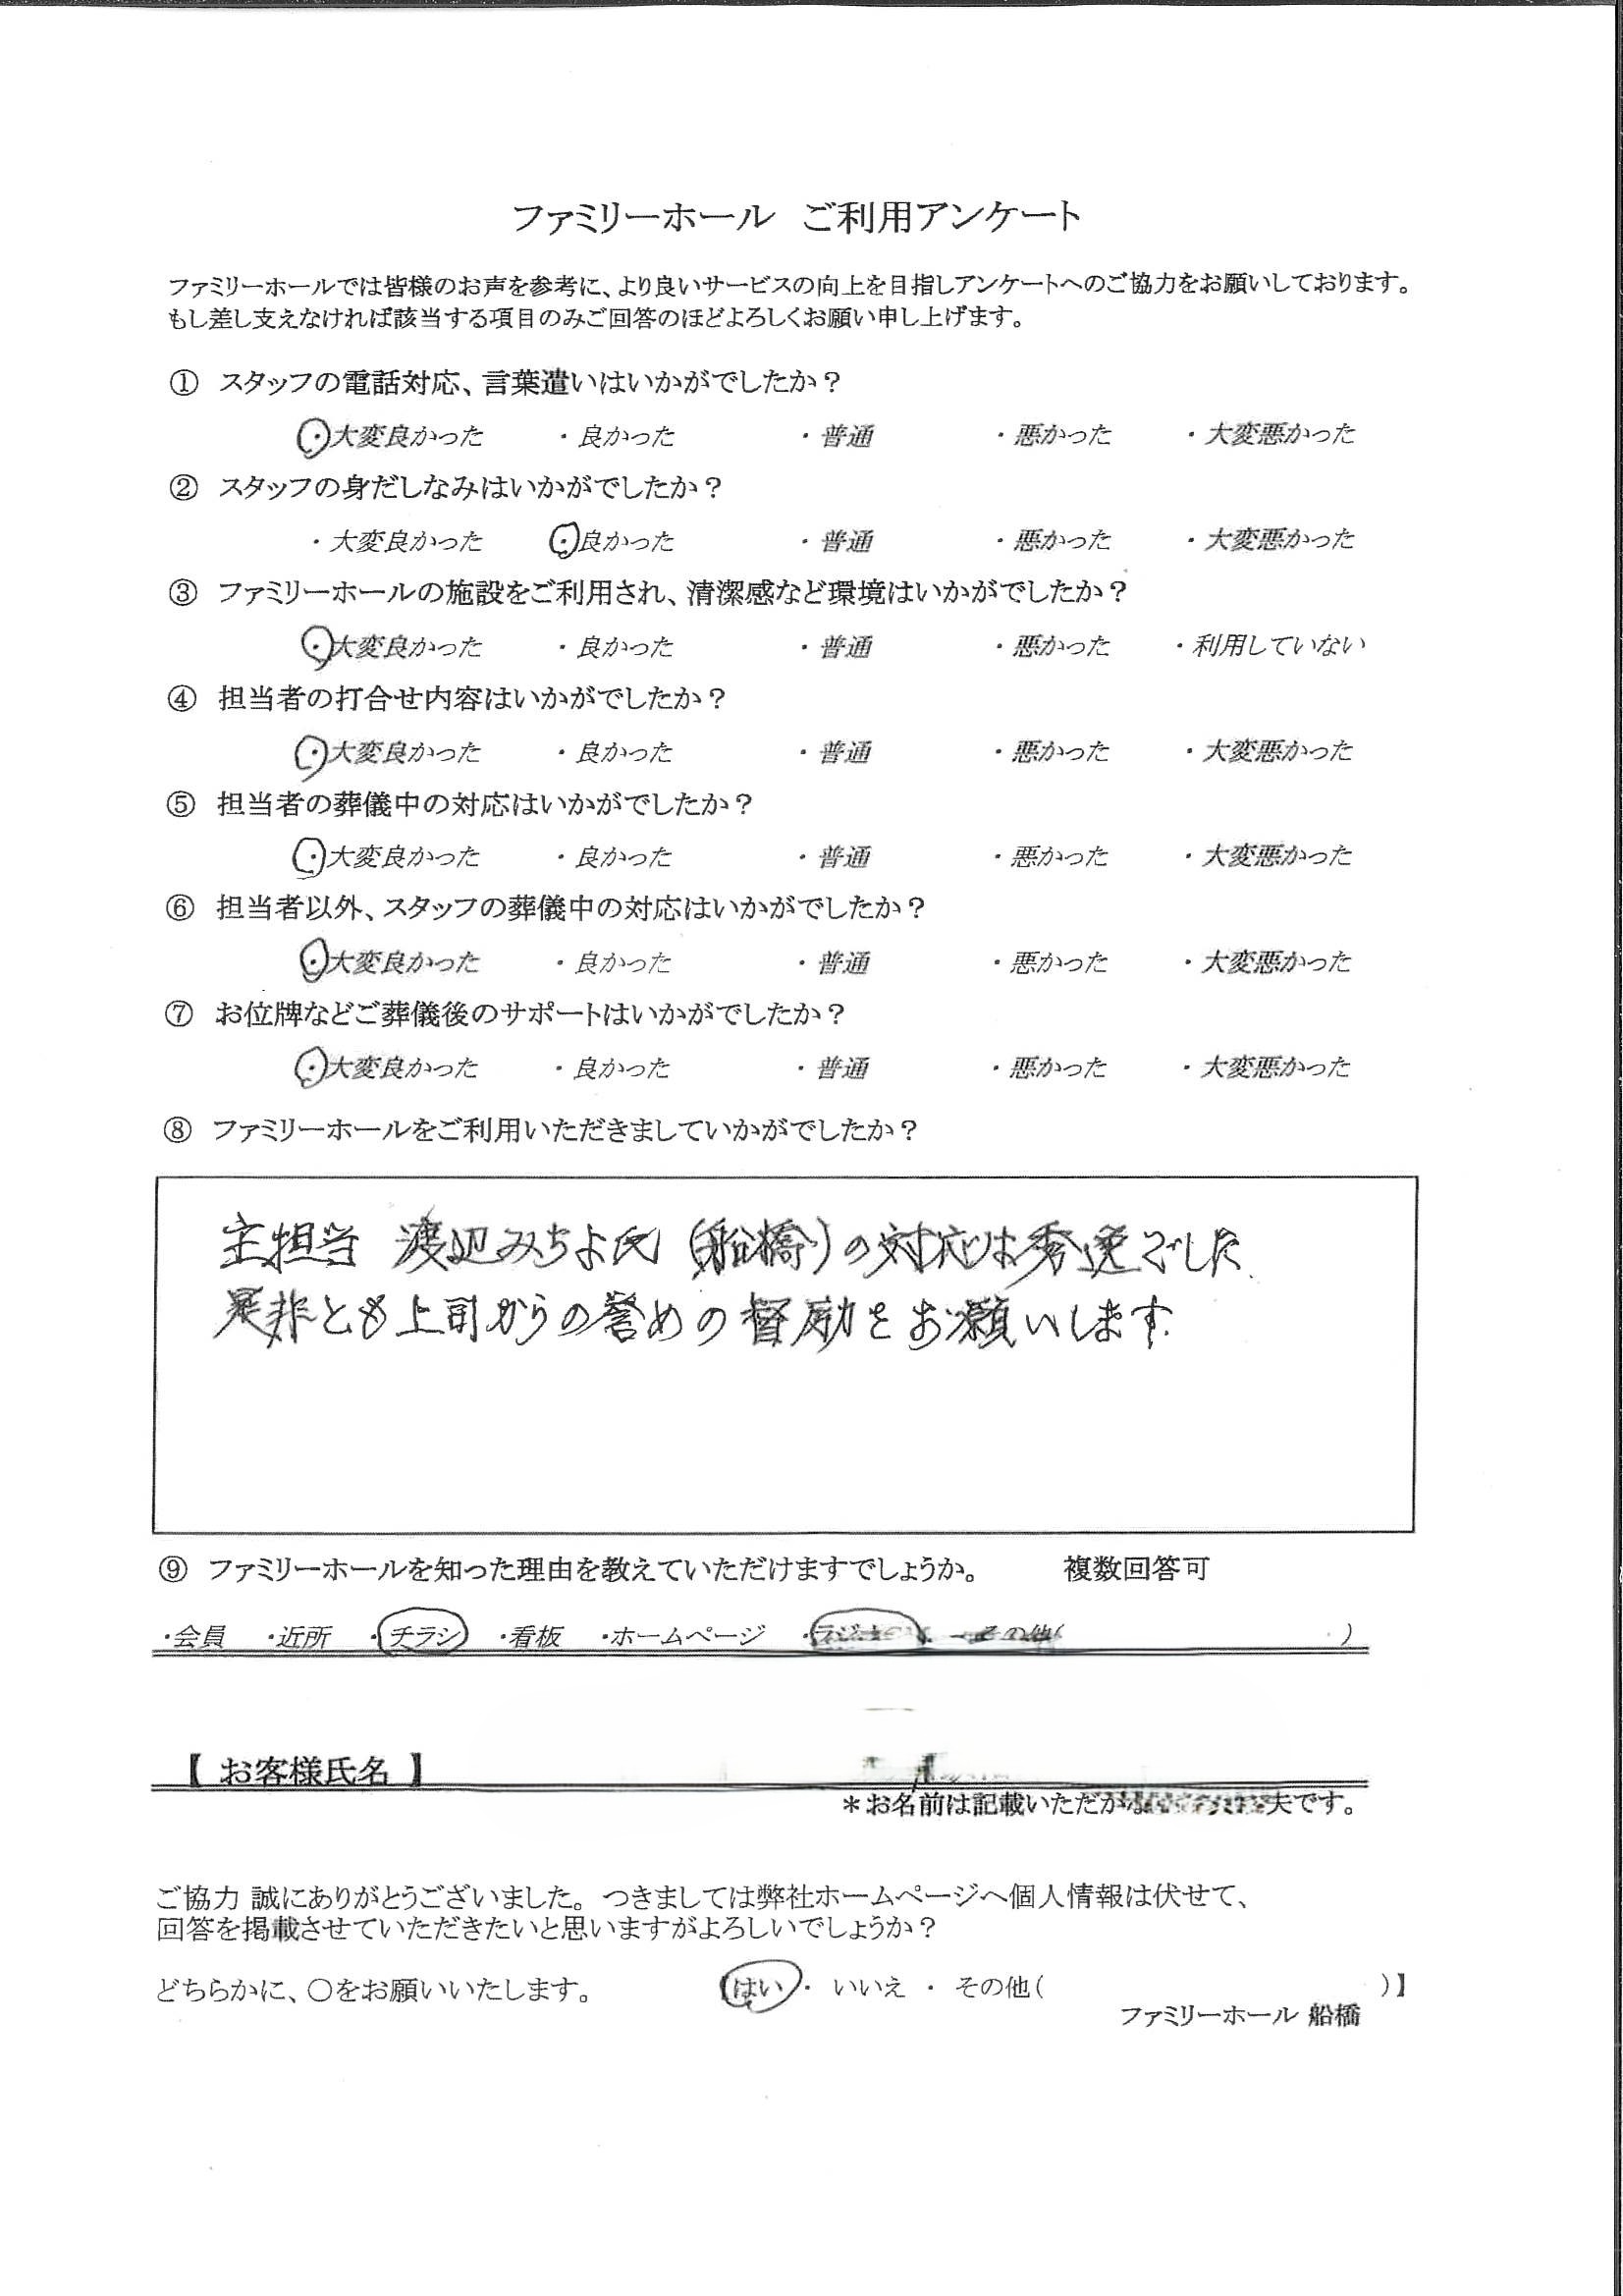 ファミリーホール ご利用アンケート
ファミリーホールでは皆様のお声を参考に、より良いサービスの向上を目指しアンケートへのご協力をお願いしております。
もし差し支えなければ該当する項目のみご回答のほどよろしくお願い申し上げます。
① スタッフの電話対応、言葉遣いはいかがでしたか？
・大変良かった ・良かった ・普通 ・悪かった ・大変悪かった
② スタッフの身だしなみはいかがでしたか？
・大変良かった ・良かった ・普通 ・悪かった ・大変悪かった
③ ファミリーホールの施設をご利用され、清潔感など環境はいかがでしたか？
・大変良かった ・良かった ・普通 ・悪かった ・利用していない
④ 担当者の打合せ内容はいかがでしたか？
・大変良かった ・良かった ・普通 ・悪かった ・大変悪かった
⑤ 担当者の葬儀中の対応はいかがでしたか？
・大変良かった ・良かった ・普通 ・悪かった ・大変悪かった
⑥ 担当者以外、スタッフの葬儀中の対応はいかがでしたか？
・大変良かった ・良かった ・普通 ・悪かった ・大変悪かった
⑦ お位牌などご葬儀後のサポートはいかがでしたか？
・大変良かった ・良かった ・普通 ・悪かった ・大変悪かった
⑧ ファミリーホールをご利用いただきましていかがでしたか？
主担当 渡辺みちよ氏（船橋）の対応は秀逸でした
是非とも上司からの誉めの督励をお願いします.
⑨ ファミリーホールを知った理由を教えていただけますでしょうか。 複数回答可
・会員 ・近所 ・チラシ ・看板 ・ホームページ ・ラジオ ・その他( )
【 お客様氏名 】
＊お名前は記載いただか 夫です。
ご協力 誠にありがとうございました。つきましては弊社ホームページへ個人情報は伏せて、
回答を掲載させていただきたいと思いますがよろしいでしょうか？
どちらかに、○をお願いいたします。 【はい ・ いいえ ・ その他( )】
ファミリーホール 船橋